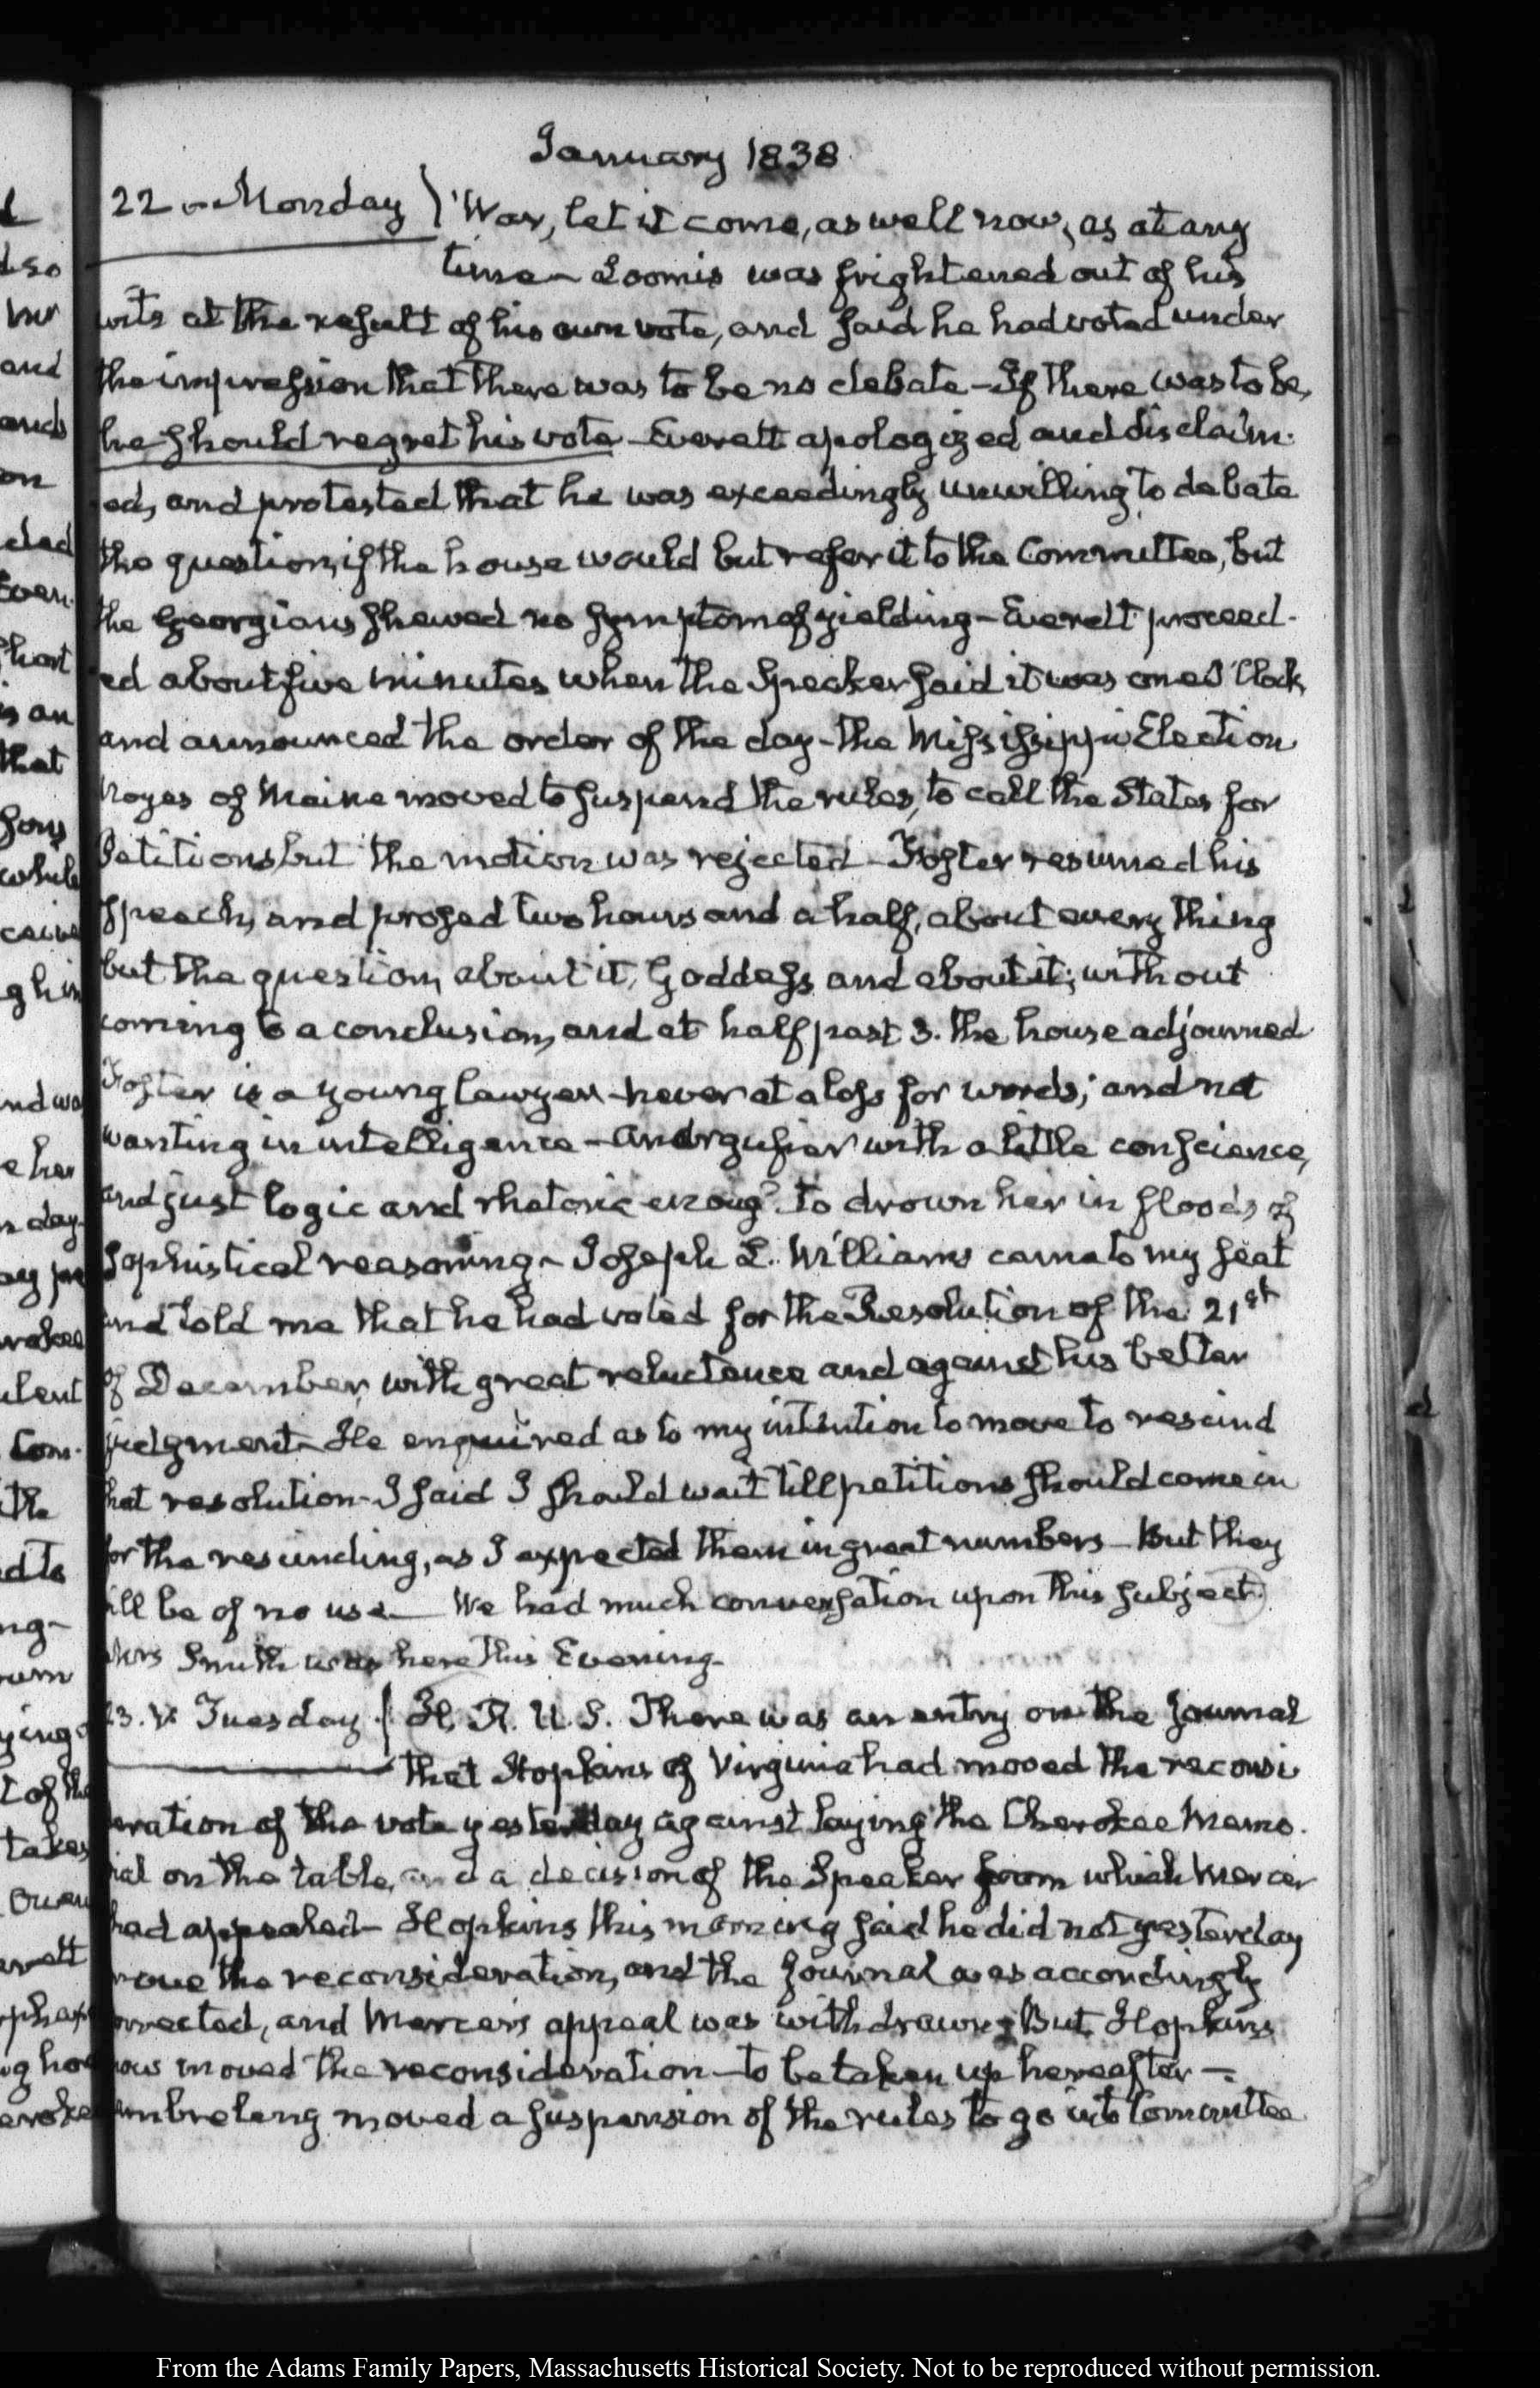 January 1838
22. Monday) War, let it come, as well now, as at any
time – Loomis was frightened out of his
wits at the result of his own vote, and said he had voted under
the impression that there was to be no debate – If there was to be,
he should regret his vote – Everett apologized and disclaim-
ed, and protested that he was exceedingly unwilling to debate
the question, if the house would but refer it to the Committee, but
the Georgians shewed no symptom of yielding – Everett proceed-
ed about five minutes when the Speaker said it was one O'Clock,
and announced the order of the day – the Mississippi Election
Noyes of Maine moved to suspend the rules, to call the States for
Petitions but the motion was rejected – Foster resumed his
Speech, and prosed two hours and a half, about every thing
but the question, about it, Goddess and about it; without
coming to a conclusion, and at half past 3. the house adjourned
Foster is a young lawyer – never at a loss for words; and not
wanting in intelligence – with a little conscience,
and just logic and rhetoric enough to drown her in floods of
sophistical reasoning – Joseph L. Williams came to my seat
and told me that he had voted for the Resolution of the 21st
of December, with great reluctance and against his better
judgment – He enquired as to my intention to move to rescind
that resolution – I said I should wait till petitions should come in
for the rescinding, as I expected them in great numbers – But they
will be of no use – We had much conversation upon this subject.
Mrs Smith was here this Evening –
23. V. Tuesday.) H. R. U. S. There was an entry on the Journal
that Hopkins of Virginia had moved the reconsi
eration of the vote yesterday against laying the Cherokee Memo-
rial on the table, and a decision of the Speaker from which Mercer
had appealed – Hopkins this morning said he did not yesterday
move the reconsideration, and the Journal was accordingly
corrected, and Mercer's appeal was withdrawn – But Hopkins
now moved the reconsideration – to be taken up hereafter –
Cambreleng moved a suspension of the rules to go into Committee
From the Adams Family Papers, Massachusetts Historical Society. Not to be reproduced without permission.